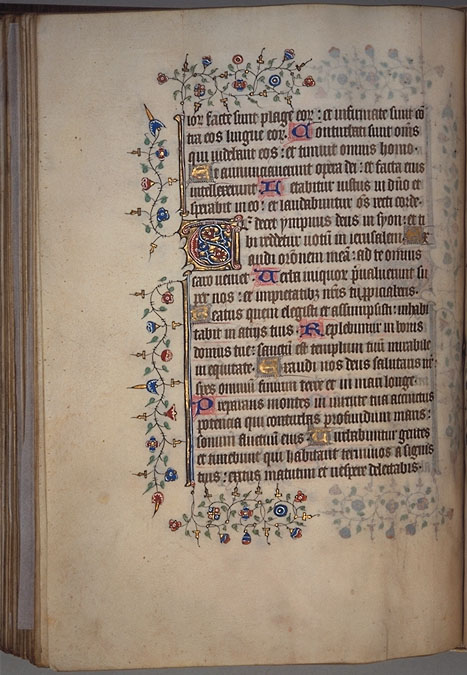 ior facte sunt plage eor : et infirmate sunt cō
tra eos lingue eor. Conturbati sunt oms
qui videbant eos : et timuit omnis homo.
Et annunciaverunt opera dei : et facta eius
intellexerunt Letabitur iustus in dno et
sperabit in eo : et laudabuntur oēs recti corde.
Te decet ympnus deus in syon : et ti
bi reddetur votū in ierusalem. Ex
audi oronem meā : ad te omnis
caro veniet Verba iniquor pvaluerunt su
per nos : et impietatibz nris tu ppiciaberis.
Beatus quem elegisti et assumpsisti : inhabi
tabit in atrijs tuis Replebimur in bonis
domus tue : sanctū est templum tuū mirabile
in equitate. Exaudi nos deus salutaris nr
spes omniū finium terre et in mari longe.
Preparans montes in virtute tua accinctus
potencia qui conturbas profundum maris :
sonum fluctuū eius Turbabuntur gentes
et timebunt qui habitant terminos a signis
tuis : exitus matutini et vespere delectabis.